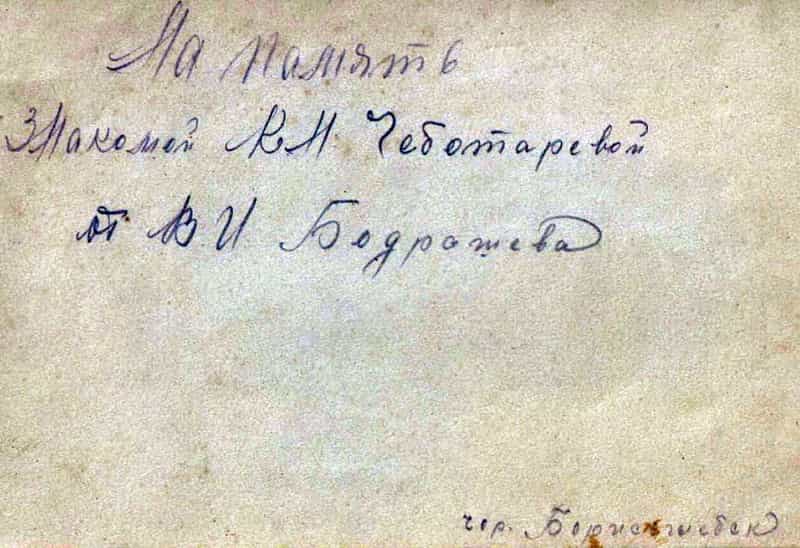 На память
Знакомой К М Чеботаревой
от В И Бодрашева
гор.